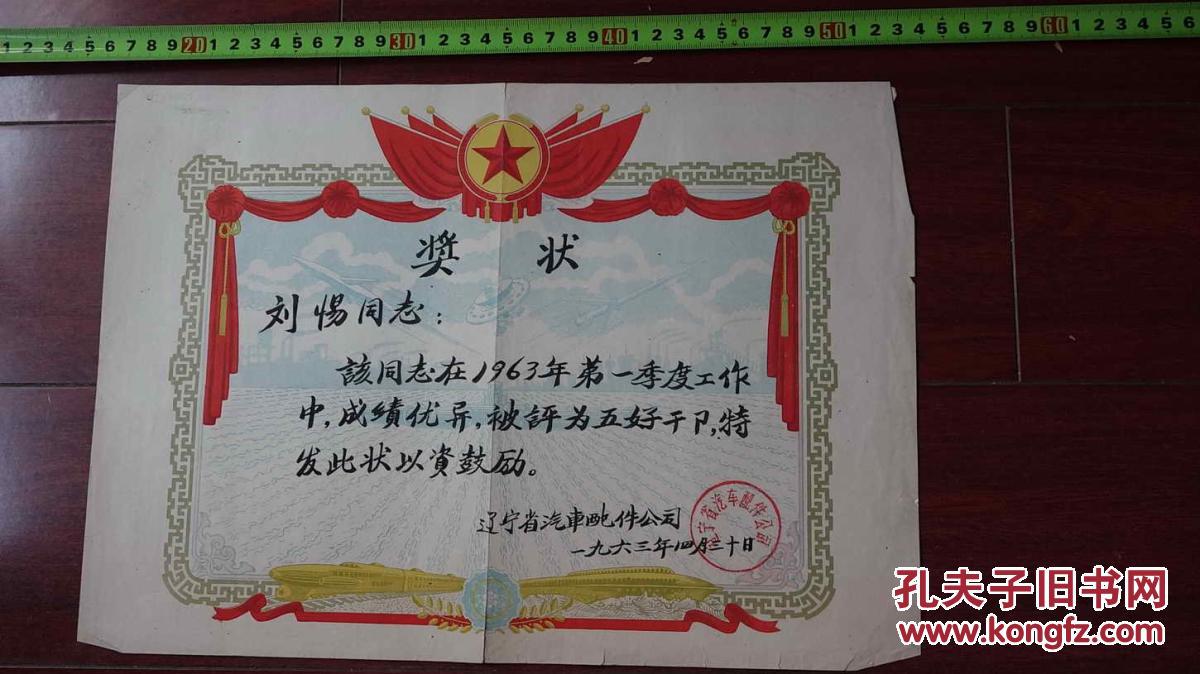 1 2 3 4 5 6 7 8 9 20 1 2 3 4 5 6 7 8 9 30 1 2 3 4 5 6 7 8 9 40 1 2 3 4 5 6 7 8 9 50 1 2 3 4 5 6 7 8 9 60 1 2 3 4 5 6
奖状
刘惕同志：
該同志在1963年第一季度工作
中,成績优异,被評为五好干卩,特
发此状以資鼓励。
辽宁省汽車配件公司
一九六三年四月三十日
辽宁省汽车配件公司
孔夫子旧书网
www.kongfz.com